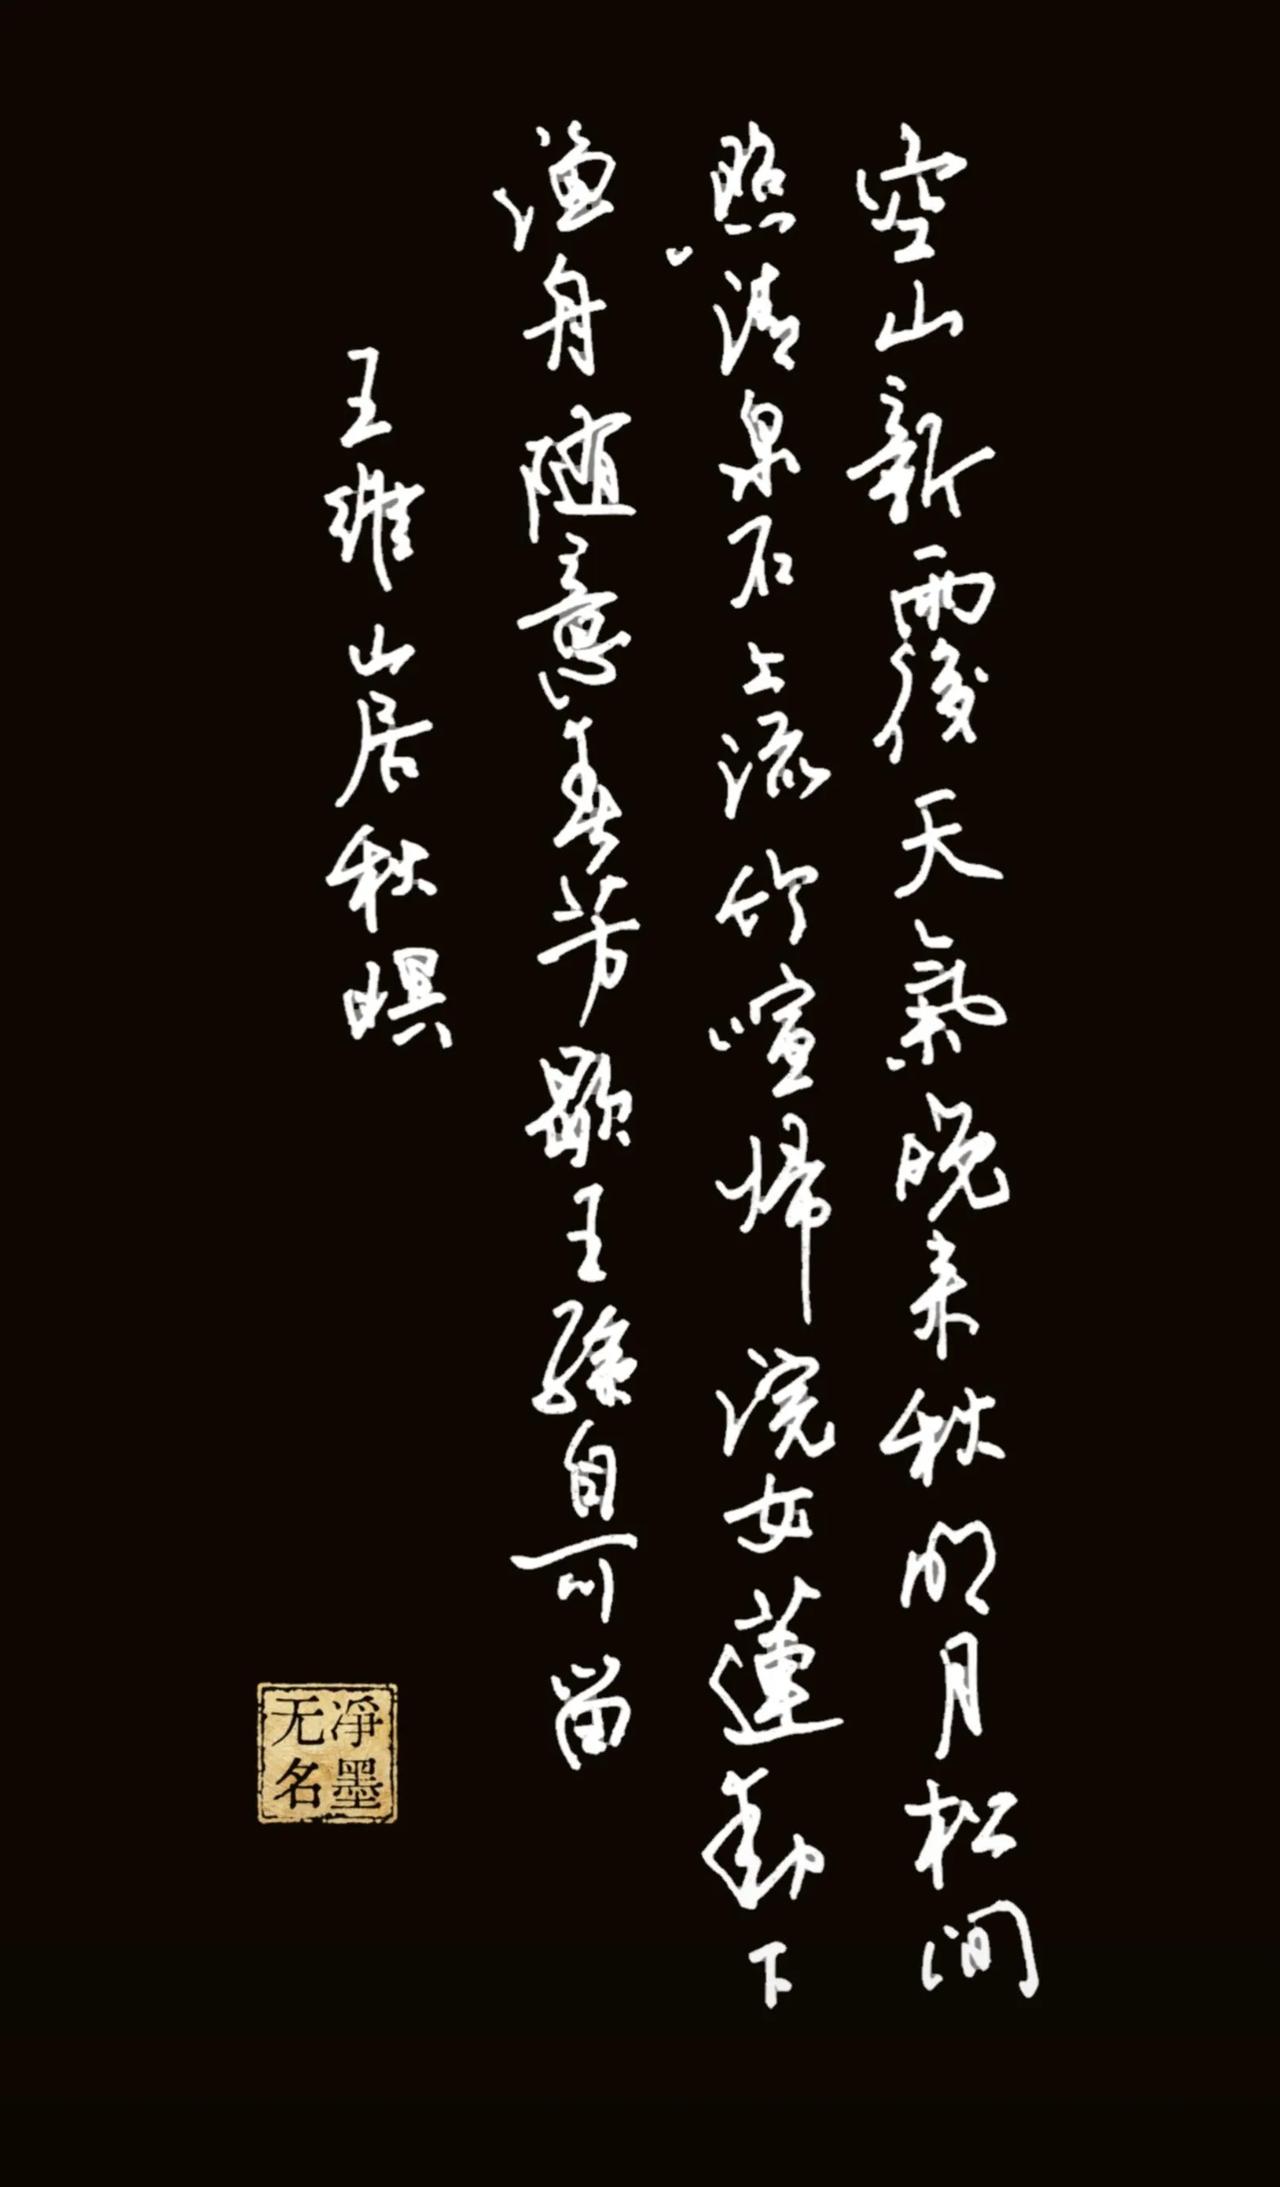 空山新雨後天氣晚来秋明月松间
照清泉石上流竹喧歸浣女蓮動下
渔舟随意春芳歇王孫自可留
王维山居秋暝
净墨
无名